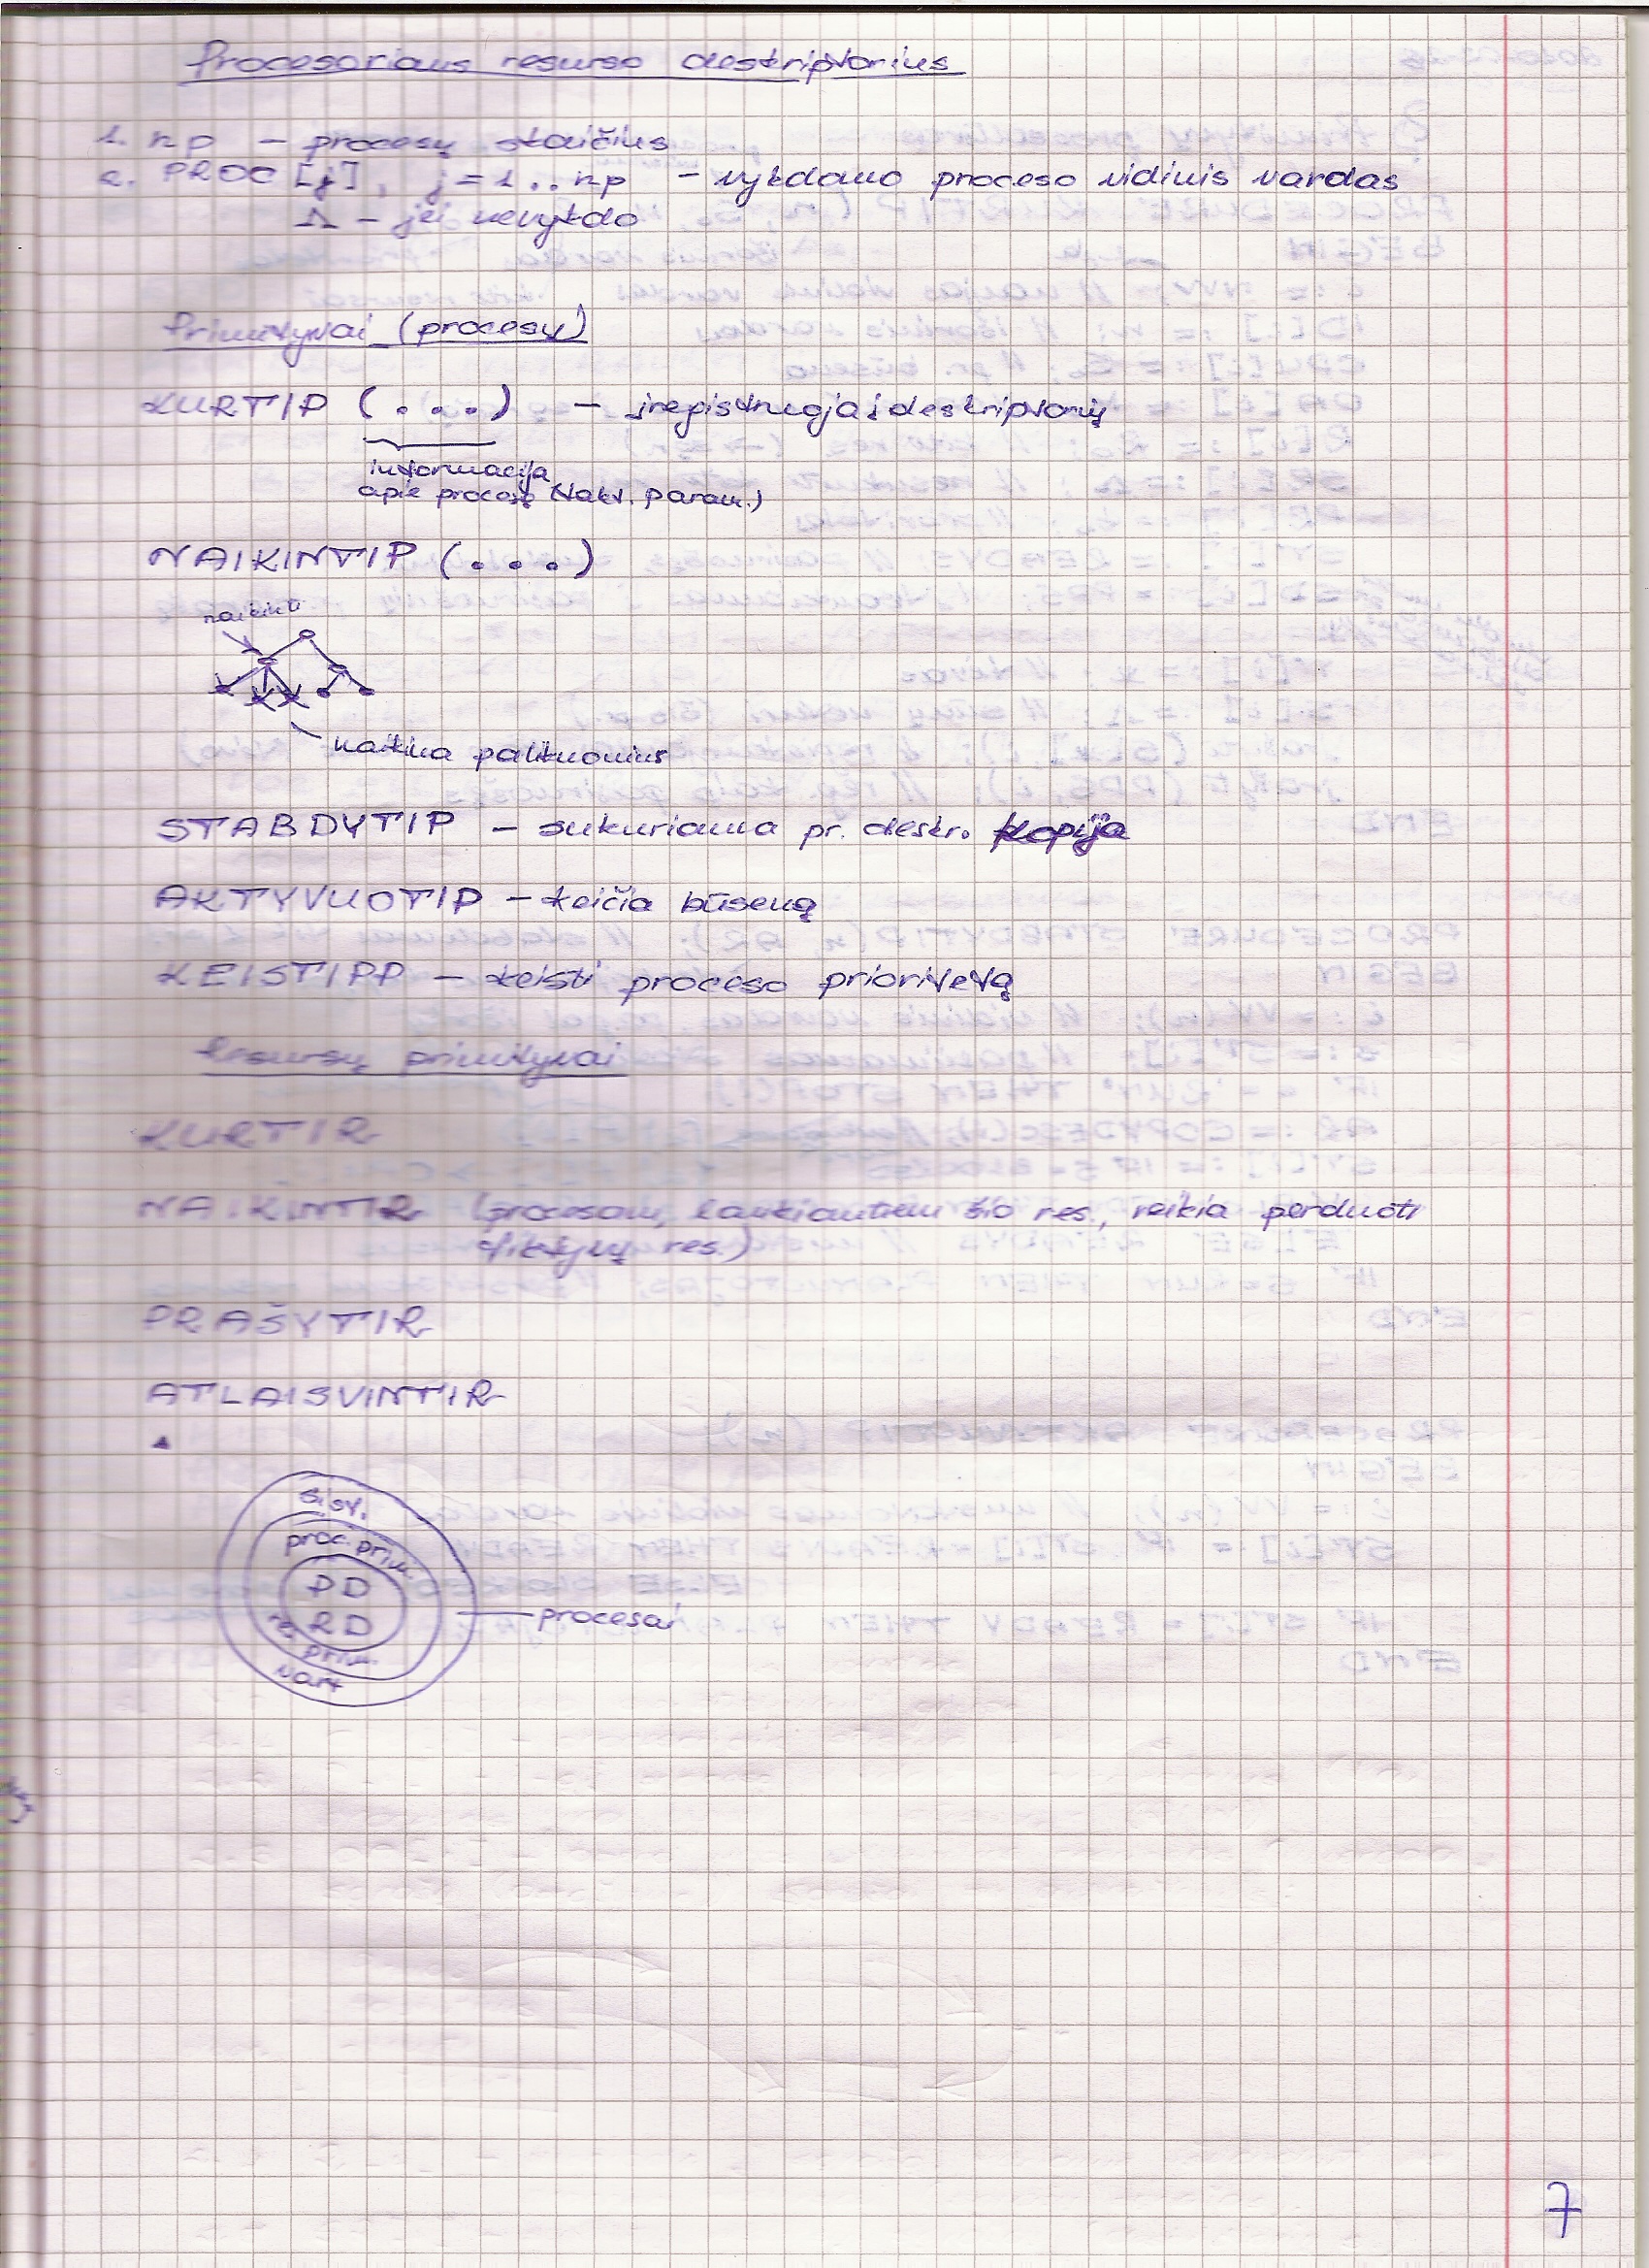 Procesoriaus resurso deskriptorius
1. np – procesų skaičius
2. PROC [j], j = 1..np – vykdamo proceso vidinis vardas
Λ – jei nevykdo
Primityvai (procesų)
KURTIP (...) – įregistruoja į deskriptorių
informacija
apie procesą (takt. param.)
NAIKINTIP (...)
naikinti
naikina palikuonius
STABDYTIP – sukuriama pr. deskr. kopija
AKTYVUOTIP – keičia būseną
KEISTIPP – keisti proceso prioritetą
Resursų primityvai
KURTIR
NAIKINTIR (procesam, laukiantiem šio res., reikia perduoti
fiktyvų res.)
PRAŠYTIR
ATLAISVINTIR
sist.
proc. prim.
PD
RD
procesai
prim.
vart
7